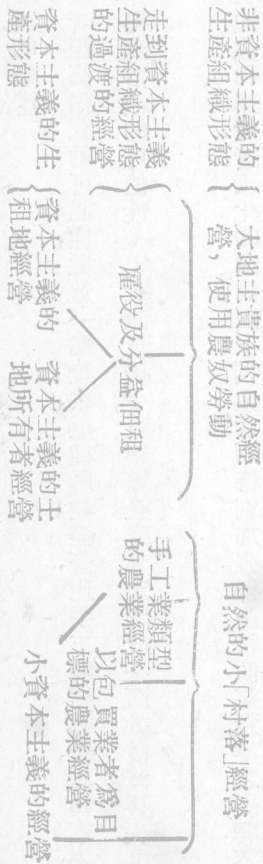 非資本主義的
生產組織形態
大地主貴族的自然經
營，使用農奴勞動
自然的小「村落」經營
走到資本主義
生產組織形態
的過渡的經營
雇役及分益佃租
手工業類型
的農業經營
以包買業者爲目
標的農業經營
資本主義的生
產形態
資本主義的
租地經營
資本主義的土
地所有者經營
小資本主義的經營